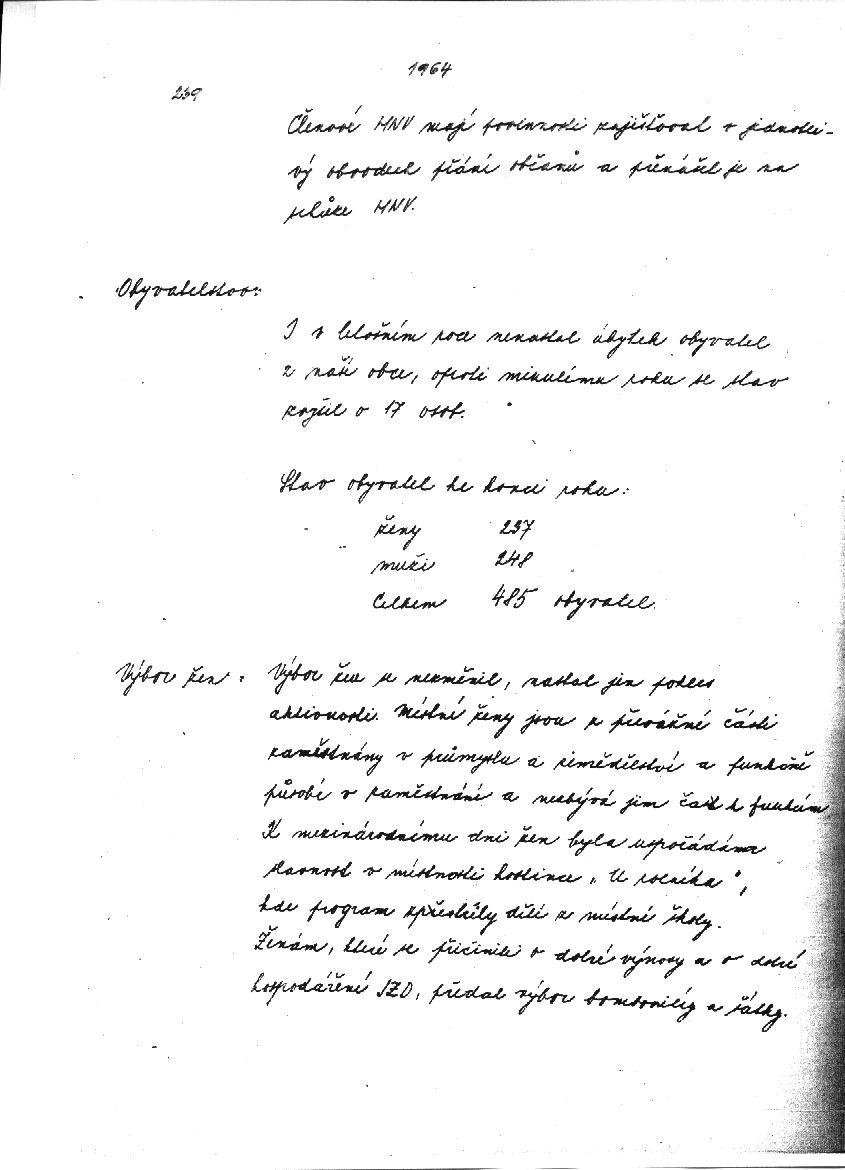 1964
239
Členové MNV mají povinnosti zajišťovat v jednotli-
vý obvodech přání občanů a přenášet je na
schůze MNV.
Obyvatelstvo:
I v letošním roce nenastal úbytek obyvatel
z naší obce, oproti minulému roku se stav
zvýšil o 17 osob.
Stav obyvatel ke konci roku:
ženy 237
muži 248
Celkem 485 obyvatel.
Výbor žen: Výbor žen se nezměnil, nastal jen pokles
aktivnosti. Místní ženy jsou z převážné části
zaměstnány v průmyslu a zemědělství a funkčně
působí v zaměstnání a nezbývá jim čas k funkcím.
K mezinárodnímu dni žen byla uspořádána
slavnost v místnosti hostince „U rolníka",
kde program zpřestřily děti z místní školy.
Ženám, které se přičinili o dobré výnosy a o dobré
hospodáření JZD, předal výbor bomboniéry a šátky.